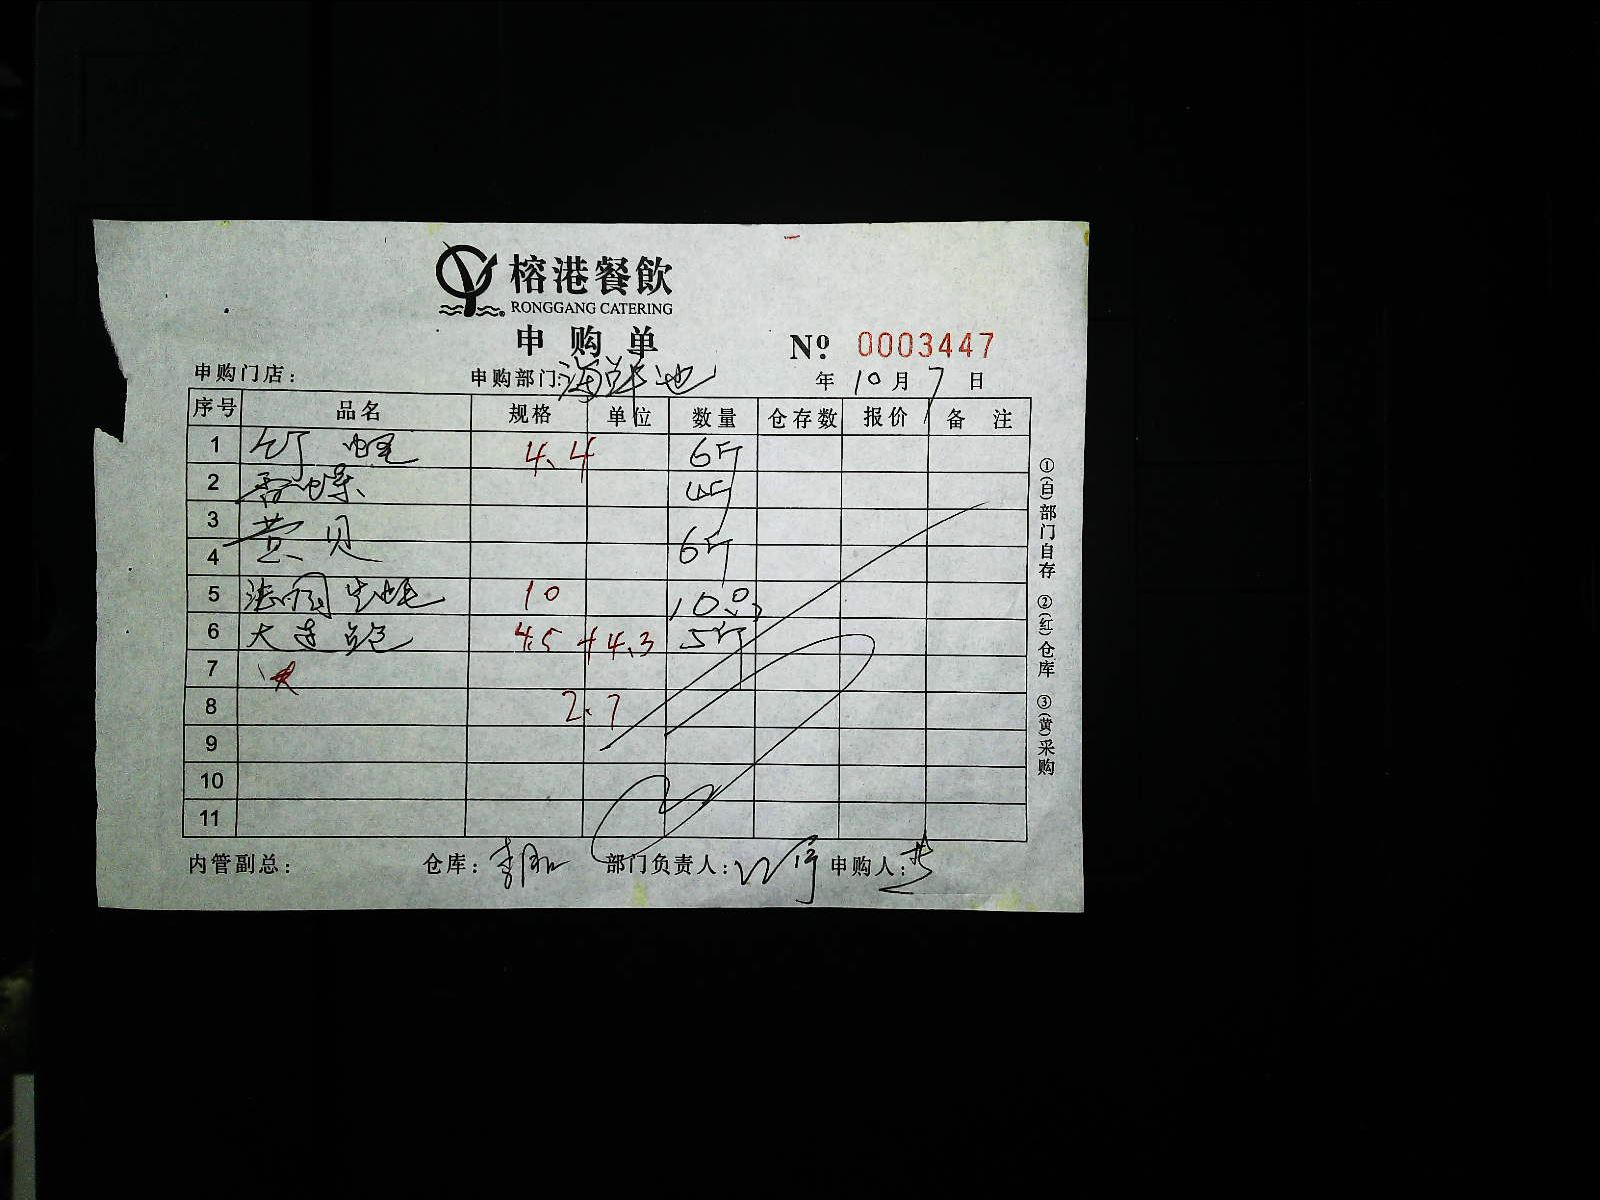 榕港餐飲
RONGGANG CATERING
申购单
Nº 0003447
申购门店： 申购部门:海鲜池 年 10 月 7 日
序号 品名 规格 单位 数量 仓存数 报价 备 注
1 竹蛏 4.4 6斤
2 香螺 4斤
3 黄贝
4 6斤
5 法国生蚝 10 10只
6 大连鲍 4.5 + 4.3 5斤
7
8 2.7
9
10
11
①(白)部门自存 ②(红)仓库 ③(黄)采购
内管副总： 仓库： 部门负责人： 申购人：